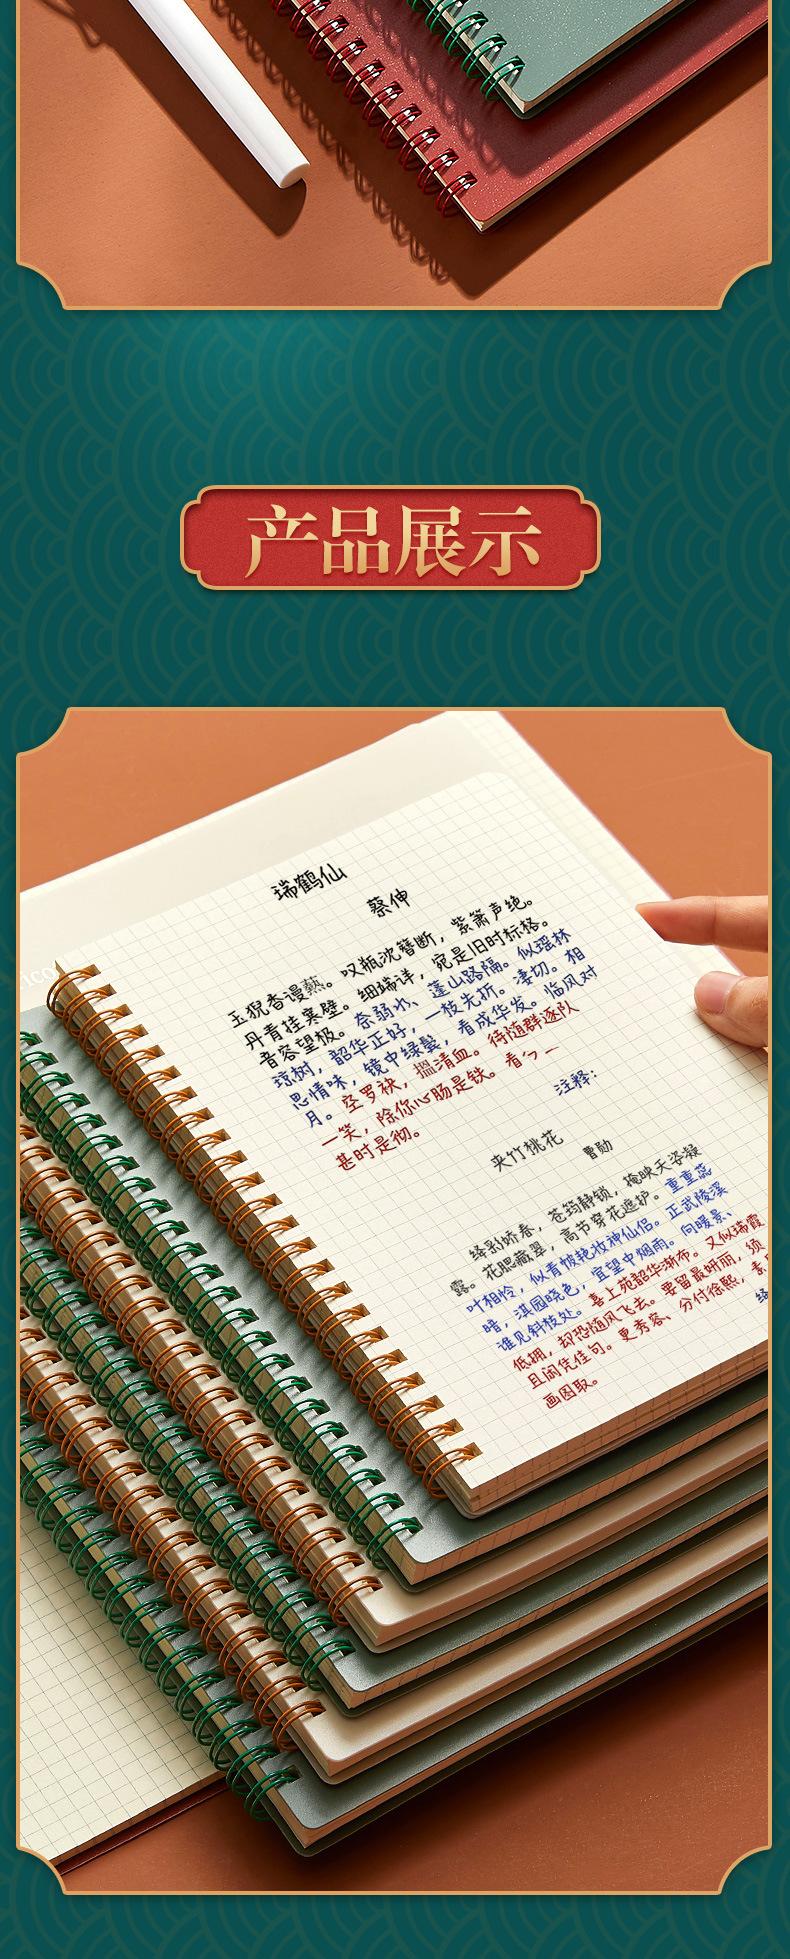 产品展示
瑞鹤仙
蔡伸
玉猊香谩爇。叹瓶沈簪断，紫箫声绝。
丹青挂寒壁。细端详，宛是旧时标格。
音容望极。奈弱水、蓬山路隔。似瑶林
琼树，韶华正好，一枝先折。凄切。相
思情味，镜中绿鬓，看成华发。临风对
月。空罗袂，揾清血。待随群逐队
一笑，除你心肠是铁。看
甚时是彻。
注释：
夹竹桃花
曹勋
绛彩娇春，苍筠静锁，掩映夭姿凝
露。花腮藏翠，高节穿花遮护。重重蕊
叶相怜，似青帔艳妆神仙侣。正武陵溪
暗，淇园晓色，宜望中烟雨。向暖景、
谁见斜枝处。喜上苑韶华渐布。又似瑞霞
低拥，却恐随风飞去。要留最妍丽，须
且闲凭佳句。更秀容、分付徐熙，素
画图取。